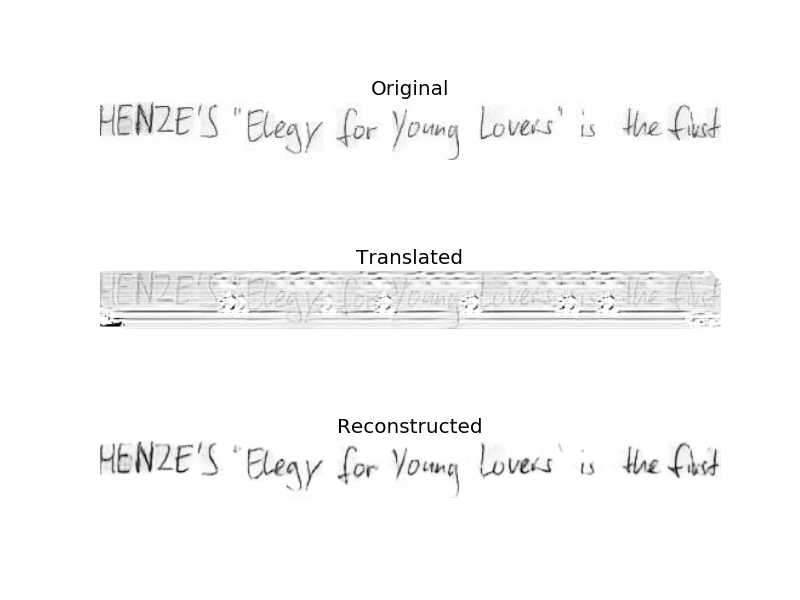 Original
HENZE'S "Elegy for Young Lovers" is the first
Translated
HENZE'S "Elegy for Young Lovers" is the first
Reconstructed
HENZE'S "Elegy for Young Lovers" is the first